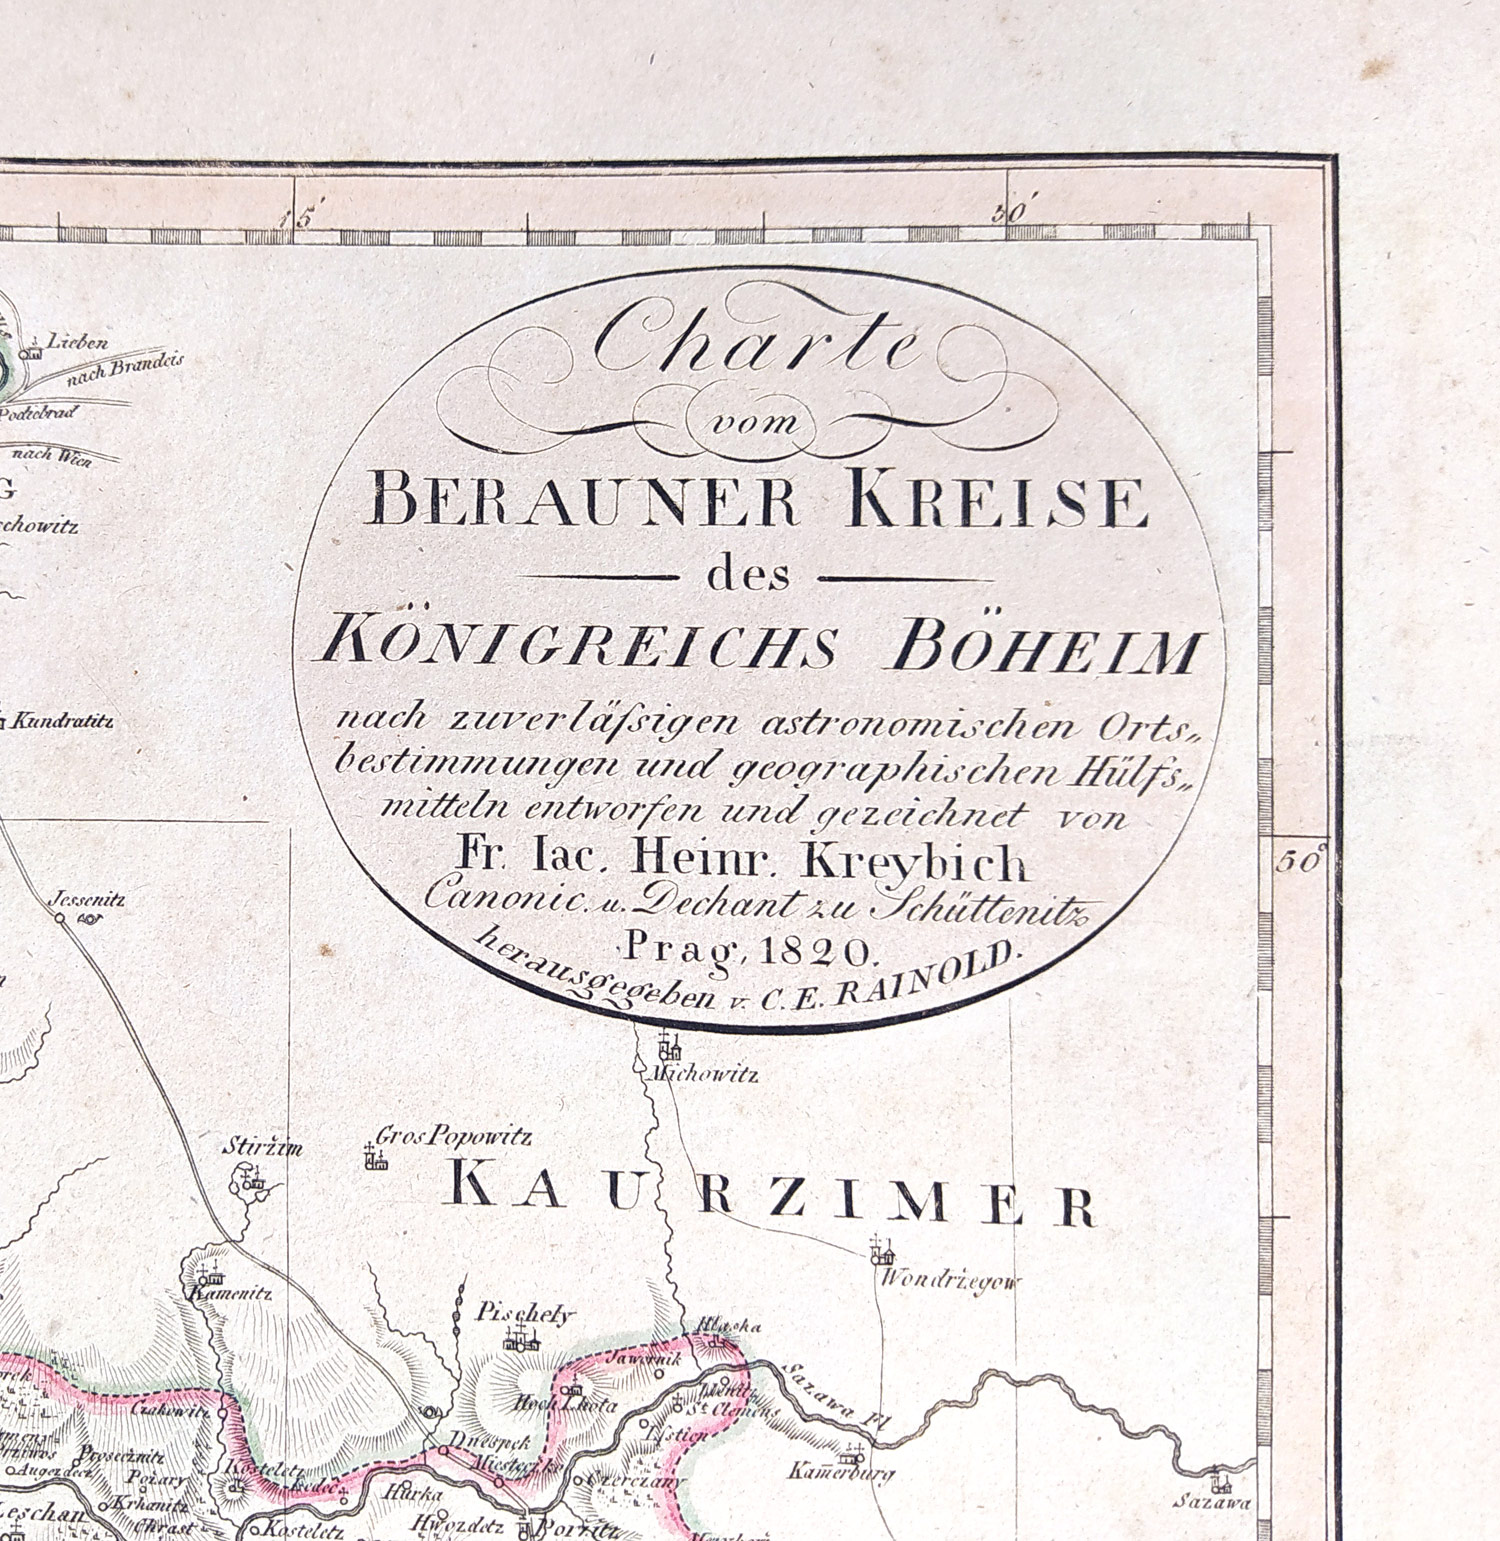 15'
30'
Lieben
nach Brandeis
Podiebrad
nach Wien
G
Charte
vom
BERAUNER KREISE
des
KÖNIGREICHS BÖHEIM
nach zuverläſsigen astronomischen Orts„
bestimmungen und geographischen Hülfs„
mitteln entworfen und gezeichnet von
Fr. Iac. Heinr. Kreybich
Canonic. u. Dechant zu Schüttenitz
Prag, 1820.
herausgegeben v. C. E. RAINOLD.
Kundratitz
50°
Jessenitz
Michowitz
Stiržim
Gros Popowitz
KAURZIMER
Wondržegow
Kamenitz
Pischely
Hlaska
Jawornik
Sazawa Fl
Hoch Lhota
St Clemens
Czakowitz
Dnespek
Miesteczko
Czerczany
Kam̄erburg
Sazawa
Prosecznitz
Augezdecz
Pozary
Kosteletz
Hurka
Krhanitz
Leschan
Chrast
Kosteletz
Hwozdetz
Porzitz